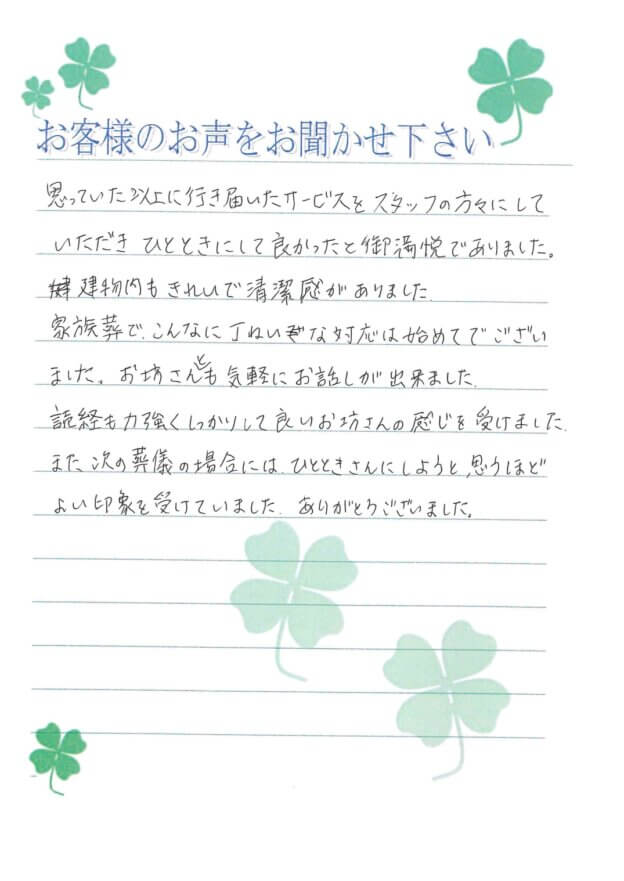 お客様のお声をお聞かせ下さい
思っていた以上に行き届いたサービスをスタッフの方々にして
いただきひとときにして良かったと御満悦でありました。
建物内もきれいで清潔感がありました
家族葬で、こんなに丁ねいな対応は始めてでござい
ました。お坊さんとも気軽にお話しが出来ました.
読経も力強くしっかりして良いお坊さんの感じを受けました.
また次の葬儀の場合には、ひとときさんにしようと、思うほど
よい印象を受けていました. ありがとうございました。